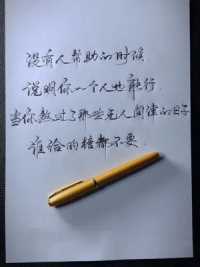 没有人帮助的时候
说明你一个人也能行
当你熬过了那些无人问津的日子
谁给的糖都不要